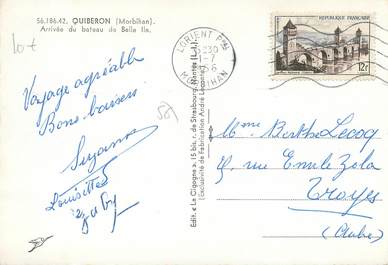 56.186.42. QUIBERON (Morbihan)
Arrivée du bateau de Belle Ile.
10 +
Voyage agréable
Bons baisers
Suzanne
Louisette
Gaby
58
Edit. « La Cigogne » 15 bis, r. de Strasbourg, Nantes (L.-I.)
(Exclusivité de Fabrication André Leconte)
LORIENT Ppal
1230
1-7
MORBIHAN
12F
Mme Berthe Lecoq
rue Emile Zola
Troyes
(Aube)